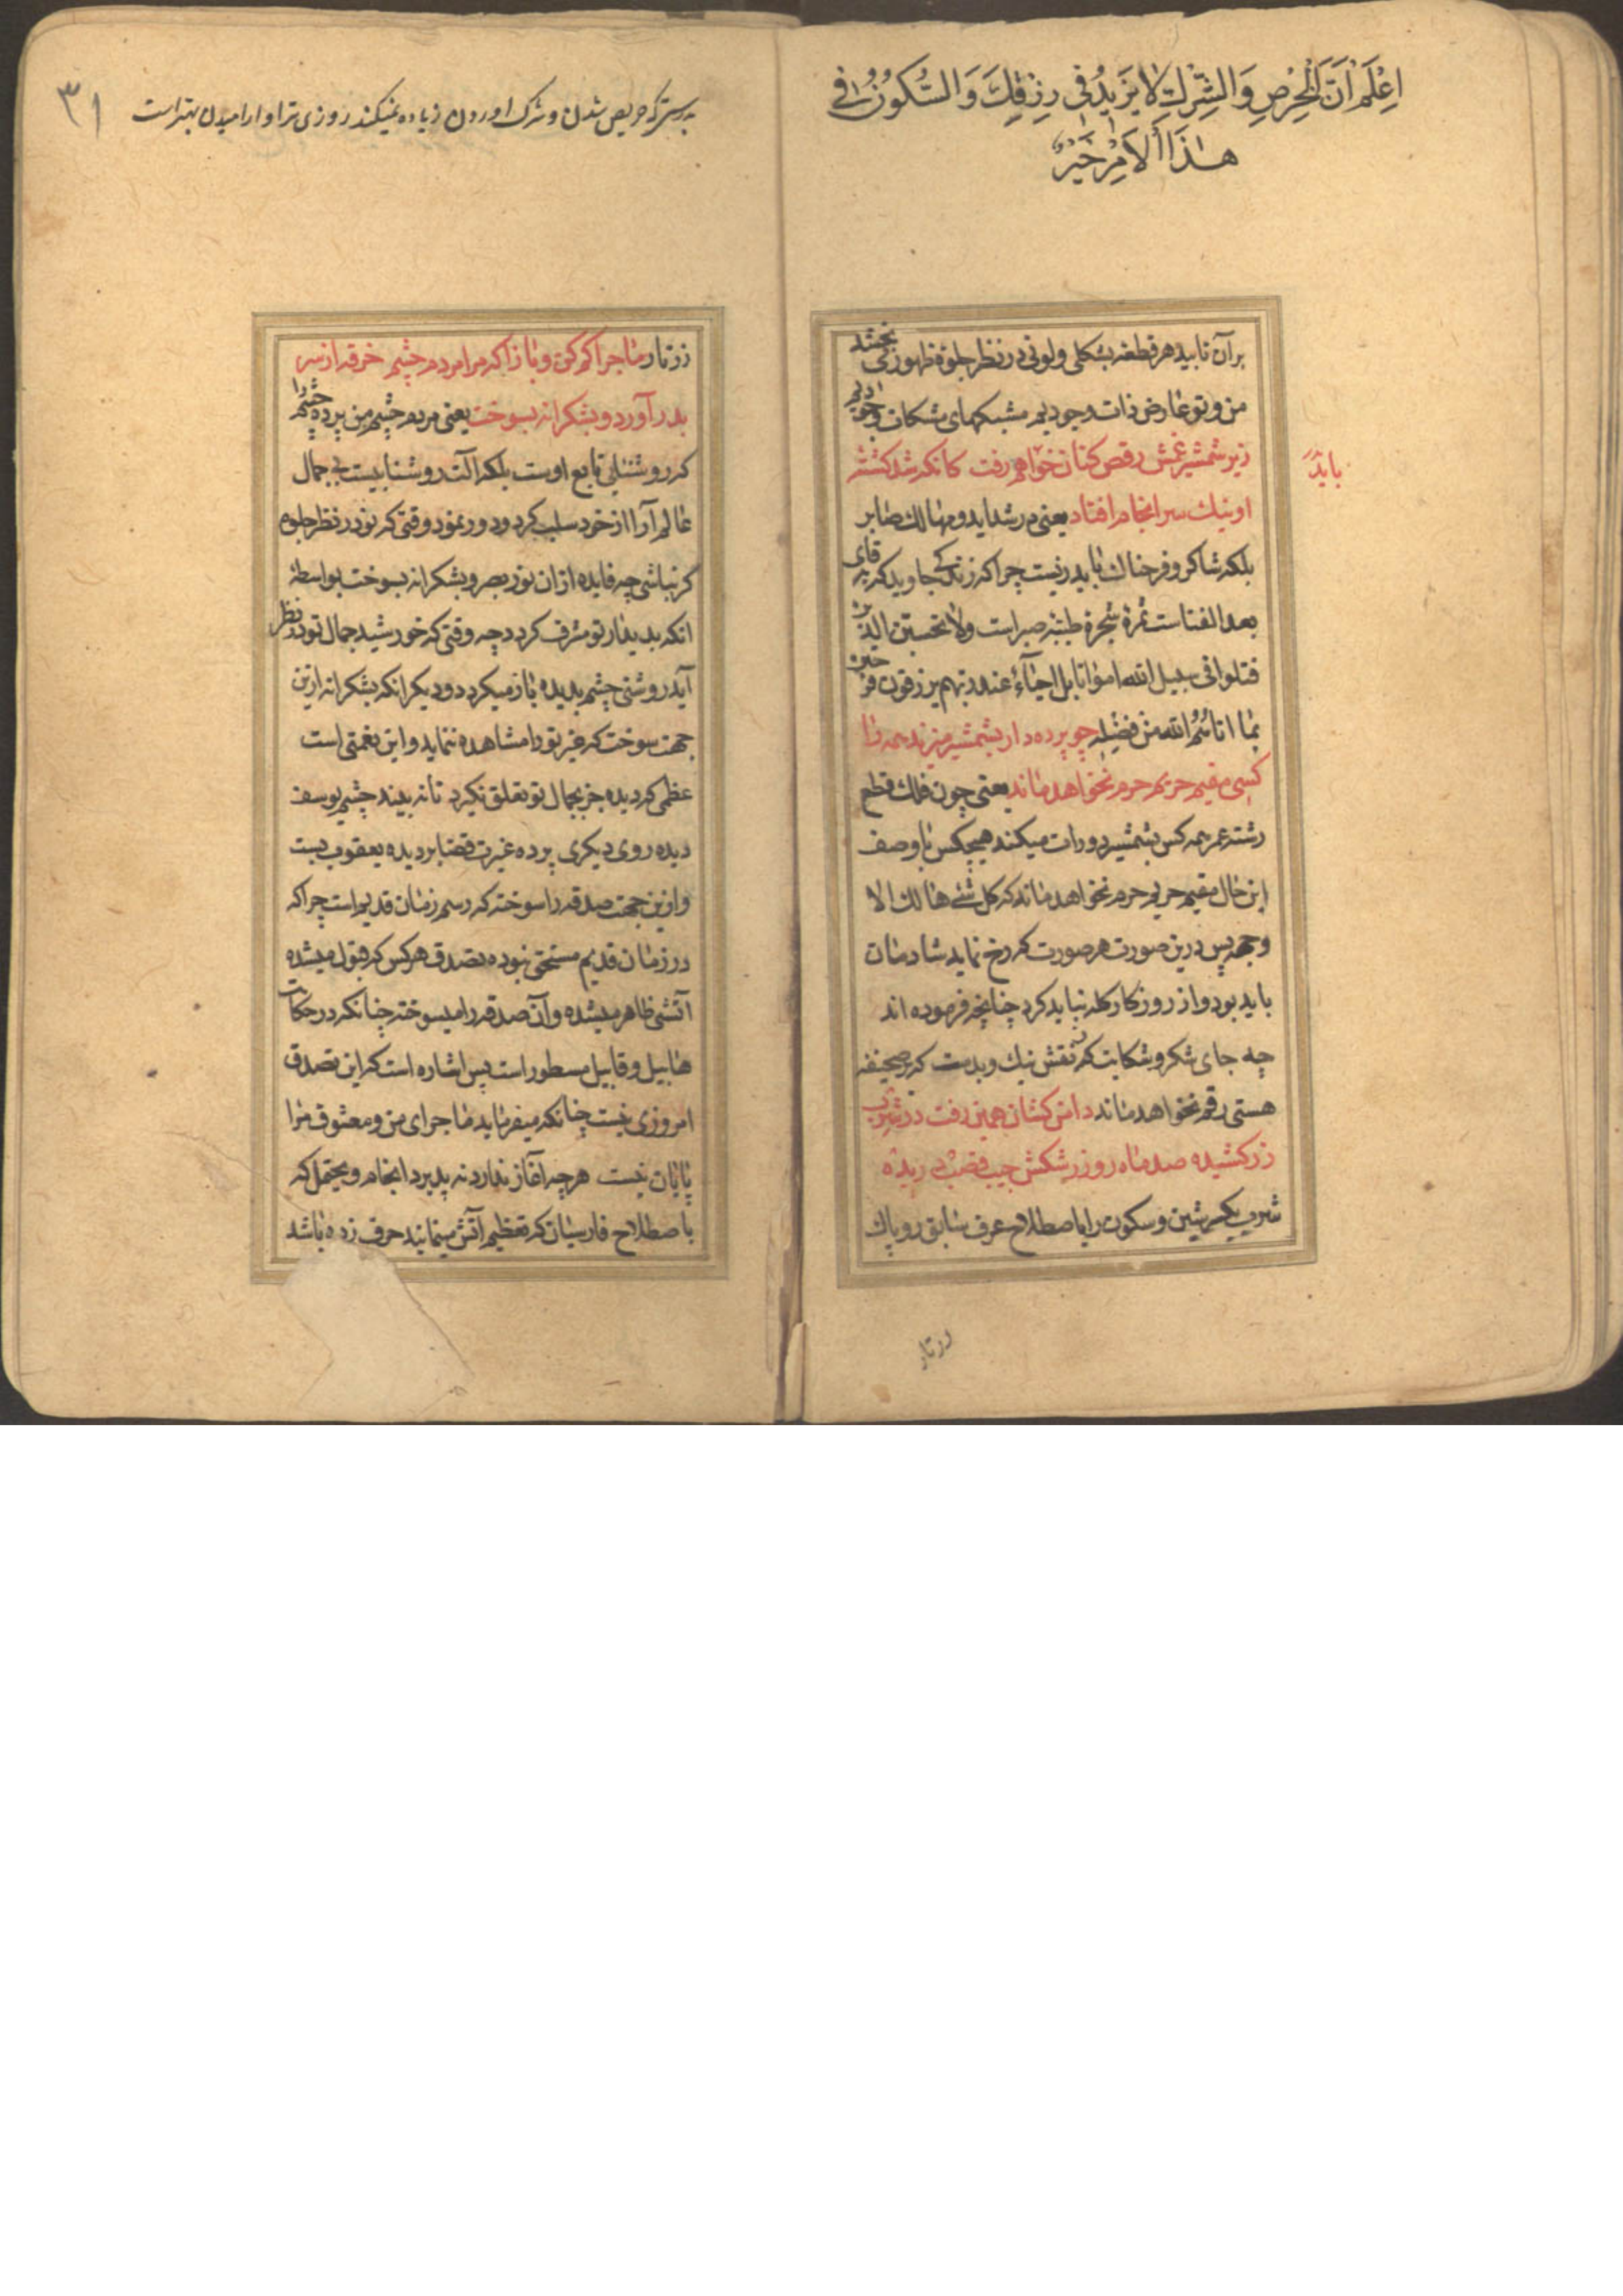 اِعْلَمْ اَنَّ الْحِرْصِ وَالشِّرْكِ لَا يَزِيْدُ فِي رِزْقِكَ وَالسُّكُوْنُ فِي
هٰذَا الْاَمْرِ خَيْرٌ
بر آن تابید هر قطعه بشکلی ولونی در نظر جلوهٔ ظهور می بخشد
من و تو عارض ذات وجودیم مشبکهای مشکات وجودیم
زیر شمشیر غمش رقص کنان خواهم رفت کانکه شد کشتهٔ
باید
او نیک سرانجام افتاد یعنی در شداید و مهالک صابر
بلکه شاکر و فرحناک باید زیست چرا که زندگی جاوید که بقای
بعد الفناست ثمرهٔ شجرهٔ طیبه صبر است ولا تحسبن الذین
قتلوا فی سبیل الله امواتا بل احیآء عند ربهم یرزقون فرحین
بما اتاهم الله من فضله چو پرده دار بشمشیر میزند همه را
کسی مقیم حریم حرم نخواهد ماند یعنی چون فلک قطع
رشته عمر همه کس بشمشیر دورات میکند هیچکس با وصف
این حال مقیم حریم حرم نخواهد ماند که کل شئ هالك الا
وجهه پس درین صورت هر صورت که رخ نماید شادمان
باید بود و از روزکار کله نباید کرد چنانچه فرموده اند
چه جای شکر و شکایت که نقش نیک و بدست که بر صحیفهٔ
هستی رقم نخواهد ماند دامن کشان همین رفت در شرب
زرکشیده صد ماه رو ز رشکش جیب قصب دریده
شرب بکسر شین و سکون را باصطلاح عرف سابق روپاک
زرتار
بدرستیکه حریص شدن و شرک اوردن زیاده نمیکند روزی ترا و ارامیدن بهتر است
۳۱
زرتار ماجرا کم کن و بازا که مرا مردم چشم خرقه از سر
بدر آورد و بشکرانه بسوخت یعنی مردم چشم من پرده چشم را
که روشنائی تابع اوست بلکه آلت روشناییست بی جمال
عالم آرا از خود سلب کرد و دور نمود وقتی که تو در نظر جلوه
کر نباشی چه فایده ازان نور بصر و بشکرانه بسوخت بواسطهٔ
انکه بدیدار تو مشرف کردد چه وقتی که خورشید جمال تو در نظر
آید روشنی چشم بدیده باز میکردد و دیکر انکه بشکرانه ازین
جهت سوخت که غیر تو را مشاهده ننماید و این نعمتی است
عظمی که دیده جز بجمال تو تعلق نکیرد تا نه بیند چشم یوسف
دیده روی دیکری پرده غیرت قضا بر دیده یعقوب بست
و ازین جهت صدقه را سوخته که رسم زمان قدیم است چرا که
در زمان قدیم مستحق نبوده تصدق هر کس که قبول میشده
آتشی ظاهر میشده و آن صدقه را میسوخته چنانکه در حکایت
هابیل و قابیل مسطور است پس اشاره است که این تصدق
امروزی نیست چنانکه میفرماید ماجرای من و معشوق مرا
پایان نیست هر چه آغاز ندارد نه پذیرد انجام و یحتمل که
باصطلاح فارسیان که تعظیم آتش مینمایند حرف زده باشد